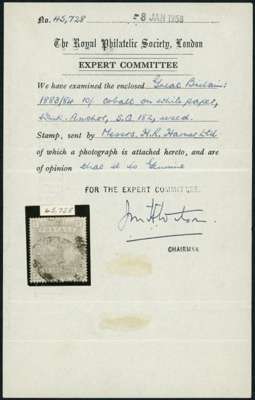 No. 45,728
-8 JAN 1958
The Royal Philatelic Society, London
EXPERT COMMITTEE
We have examined the enclosed Great Britain:
1883/84 10/ cobalt on white paper,
wmk. Anchor, S.G. 182, used.
Stamp, sent by Messrs. H.R. Harmer Ltd
of which a photograph is attached hereto, and are
of opinion that it is Genuine
FOR THE EXPERT COMMITTEE.
CHAIRMAN
45,728